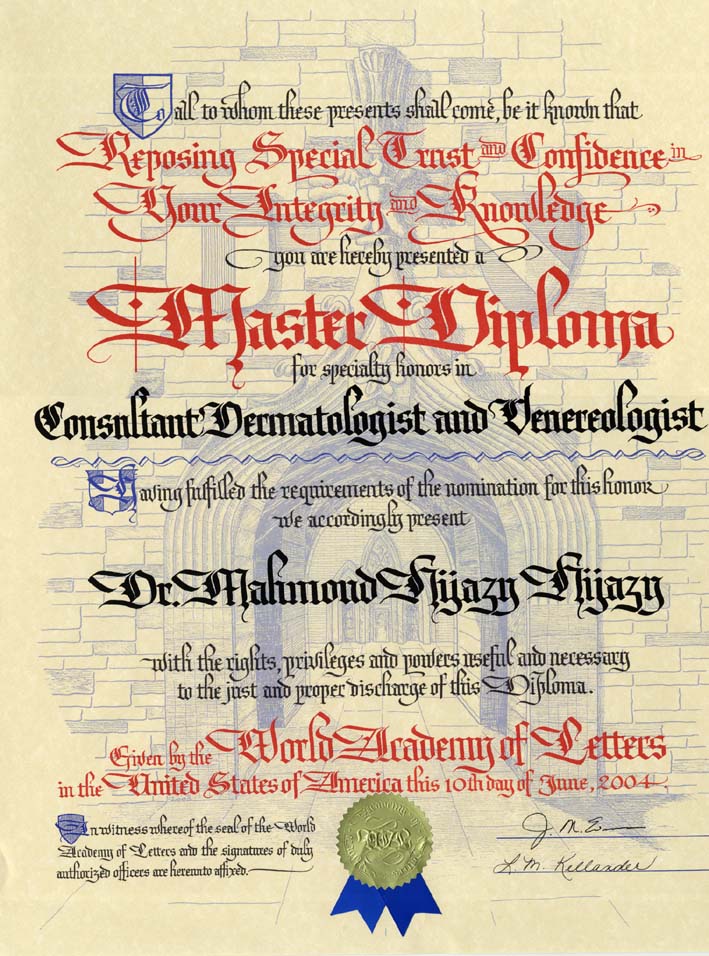 To all to whom these presents shall come, be it known that
Reposing Special Trust and Confidence in
Your Integrity and Knowledge
you are hereby presented a
Master Diploma
for specialty honors in
Consultant Dermatologist and Venereologist
Having fulfilled the requirements of the nomination for this honor
we accordingly present
Dr. Mahmoud Hijazy Hijazy
with the rights, privileges and powers useful and necessary
to the just and proper discharge of this Diploma.
Given by the World Academy of Letters
in the United States of America this 10th day of June, 2004.
In witness whereof the seal of the World
Academy of Letters and the signatures of duly
authorized officers are hereunto affixed.
J. M. E
L. M. Killander